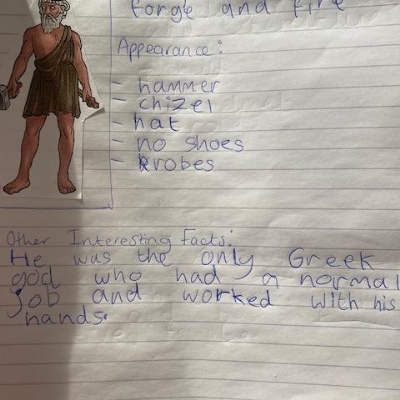 forge and fire
Appearance:
- hammer
- chizel
- hat
- no shoes
- robes
Other Interesting Facts:
He was the only Greek
god who had a normal
job and worked with his
hands.